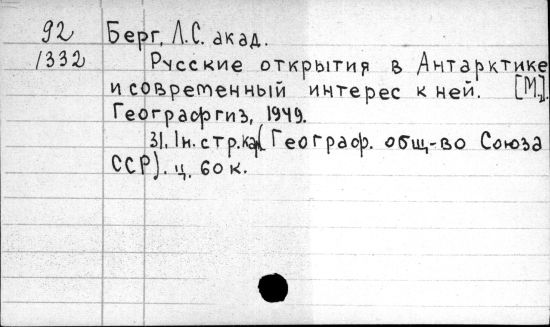 92 Берг, Л.С. акад.
1332 Русские открытия в Антарктике
и современный интерес к ней. [М.],
Географгиз, 1949.
31, 1н. стр. кар. (Географ. общ-во Союза
ССР). ц. 60 к.